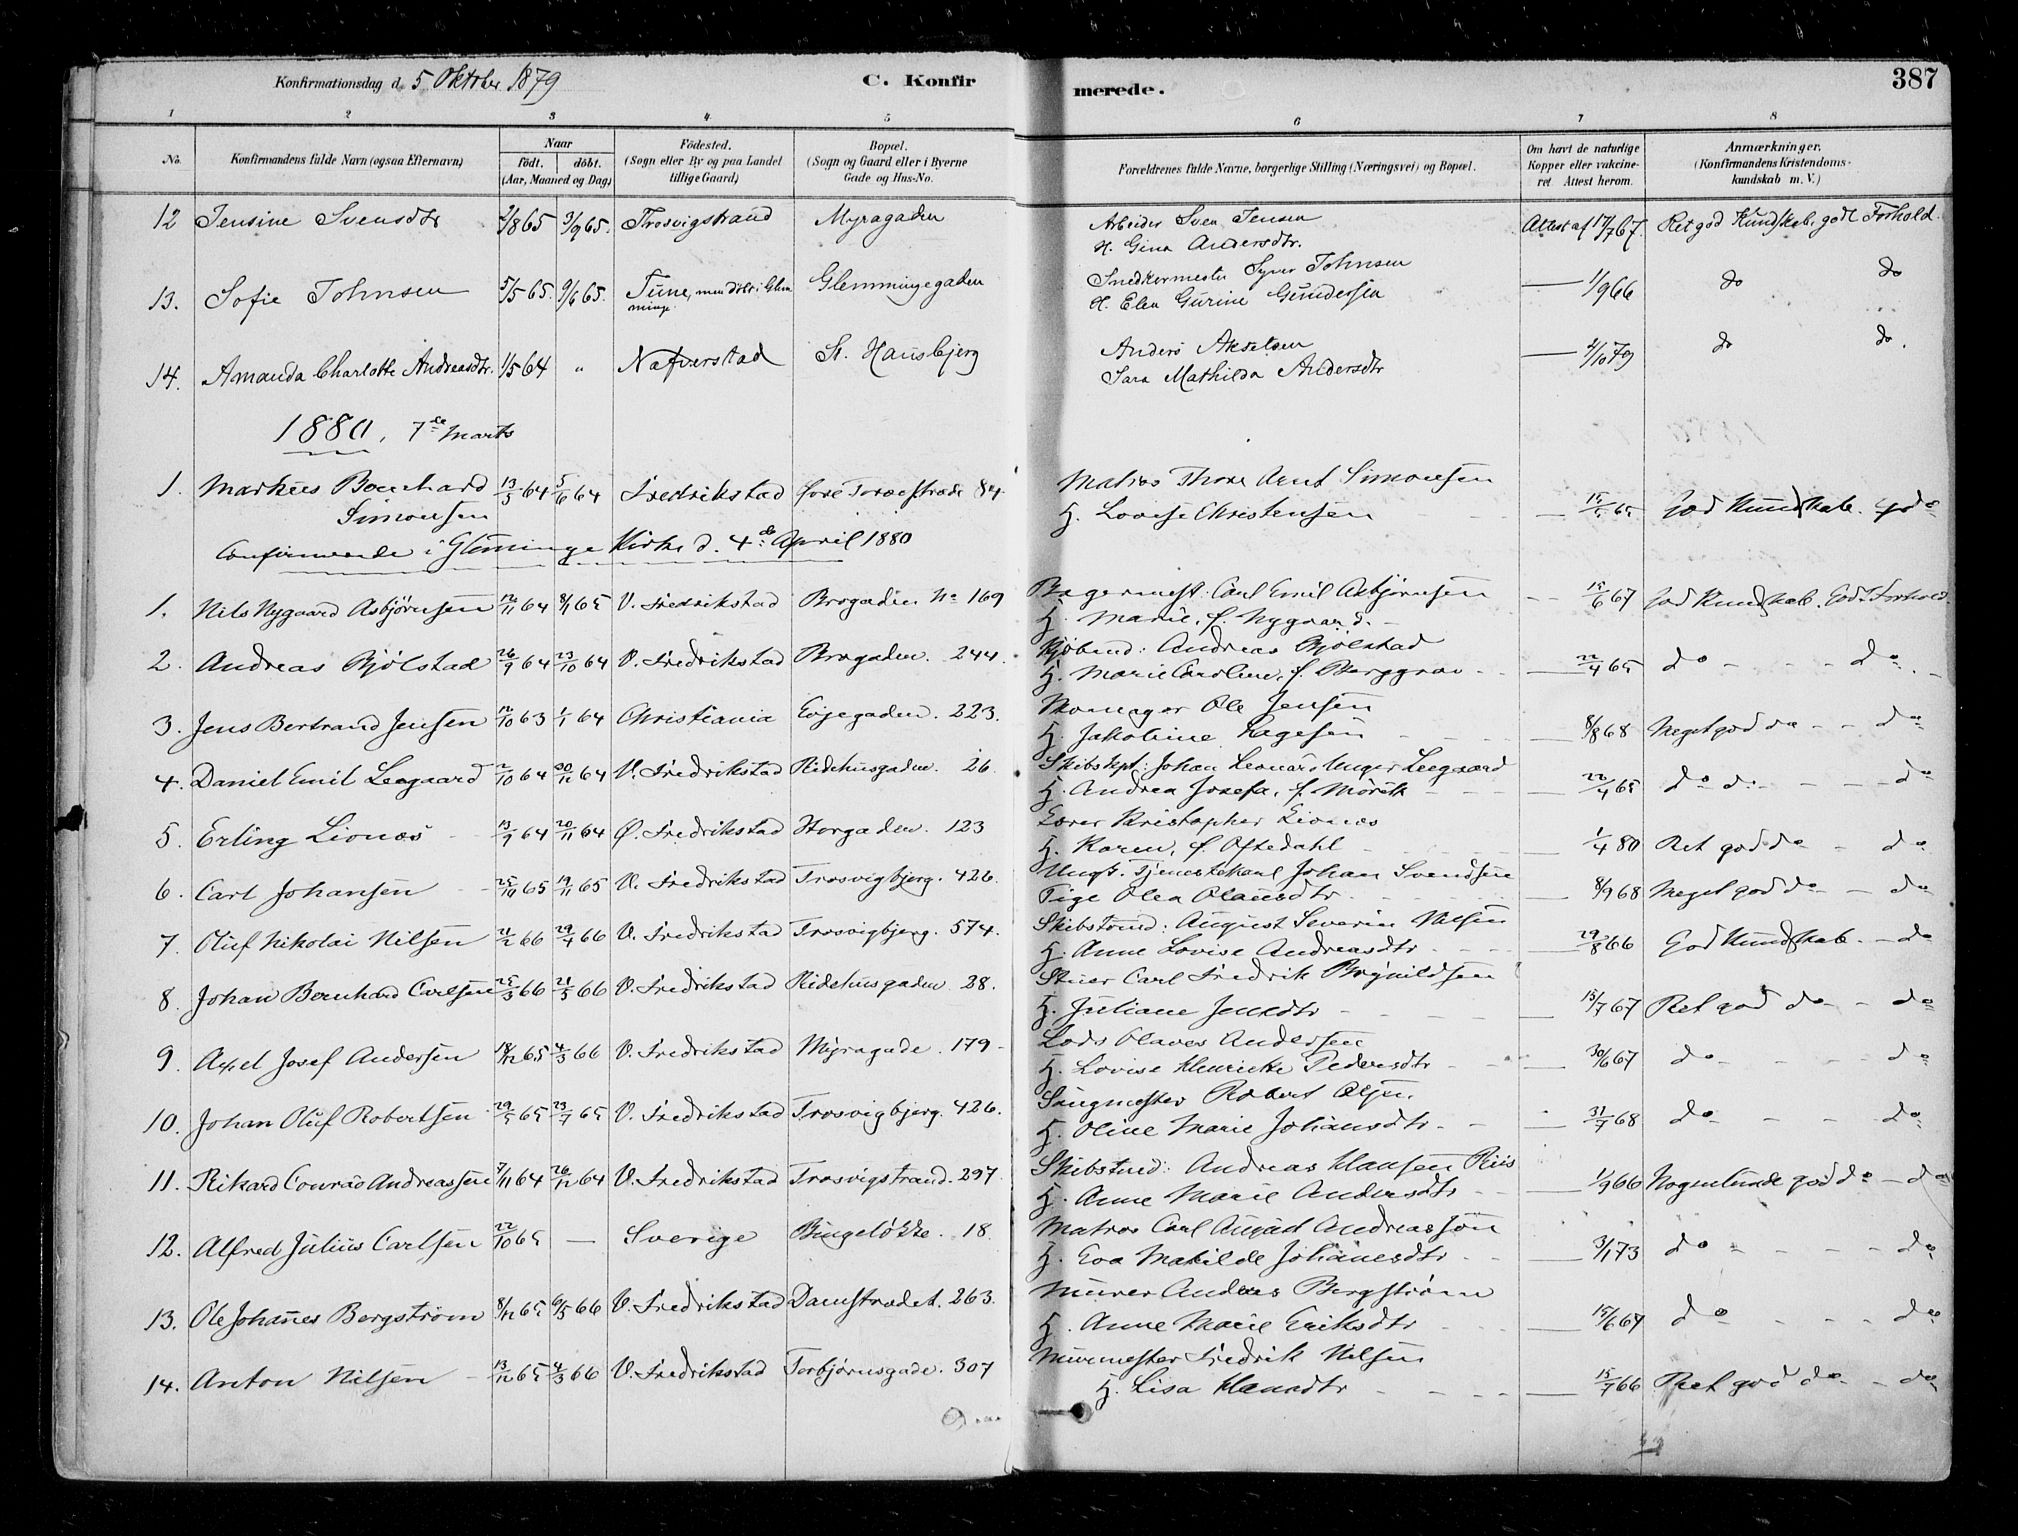 Konfirmationsdag d. 5 Oktober 1879 C. Konfirmerede. 387
1 2 3 4 5 6 7 8
No. Konfirmandens fulde Navn (ogsaa Efternavn) Naar født. døbt. (Aar, Maaned og Dag) Fødested. (Sogn eller By og paa Landet tillige Gaard) Bopæl. (Sogn og Gaard eller i Byerne Gade og Hus-No. Forældrenes fulde Navne, borgerlige Stilling (Næringsvei) og Bopæl. Om havt de naturlige Kopper eller vakcineret Attest herom. Anmærkninger. (Konfirmandens Kristendomskundskab m. V.)
12 Jensine Svensdtr 2/8 65 3/9 65. Trosvigstrand Myragaden Arbeider Sven Jensen Attest af 17/7 67. Ret god Kundskab, godt Forhold.
H. Gina Andersdtr.
13. Sofie Johnsen 5/5 65. 9/6 65. Tune, men døbt i Glemminge Glemmingegaden Snedkermester Syver Johnsen — 1/9 66 do do
H. Elen Gurine Gundersen
14. Amanda Charlotte Andreasdtr. 1/5 64 " Nafverstad St. Hansbjerg Anders Akselsen — 2/10 79 do do.
Sara Mathilda Andersdtr
1880, 7de Marts
1. Markus Bernhard Simonsen 13/5 64 5/6 64 Fredrikstad Øvre Torvestræde 84. Matros Thore Arnt Simonsen
H. Lovise Christensen — 15/5 65 God Kundskab. god
Confirmerede i Glemminge Kirke d. 4de April 1880
1. Nils Nygaard Asbjørnsen 12/11 64 8/1 65 V. Fredrikstad Brogaden No 169 Bagermest: Carl Emil Asbjørnsen 15/6 67 God Kundskab. Godt Forhold.
H. Marie, f. Nygaard.
2. Andreas Bjølstad 26/9 64 23/10 64 V. Fredrikstad Brogaden. 244. Kjøbmd: Andreas Bjølstad
H. Marie Caroline, f. Berggrav — 22/4 65 do do
3. Jens Bertrand Jensen 12/10 63 1/1 64 Christiania Voiegaden. 223. Skomager Ole Jensen
H. Jakobine Hagesen — 8/8 68 Meget god do do
4. Daniel Emil Leegaard 2/10 64 30/11 64 V. Fredrikstad Ridehusgaden. 26. Skibskpt: Johan Leonard Unger Leegaard
H. Andrea Josefa, f. Mørch — 22/4 65 do do do
5. Erling Lionæs 13/9 64 20/11 64 Ø. Fredrikstad Storgaden. 123 Lærer Kristopher Lionæs
H. Karen, f. Oftedahl — 1/4 80 Ret god do do
6. Carl Johansen 25/10 65 19/11 65 V. Fredrikstad Trosvigbjerg. 426. Ungk. Tjenestekarl Johan Svendsen
Pige Olea Olausdtr 8/9 68 Meget god do do
7. Oluf Nikolai Nilsen 21/2 66 29/4 66 V. Fredrikstad Trosvigbjerg. 574. Skibstømd: August Severin Nilsen
H. Anne Lovise Andreasdtr 29/8 66 God Kundskab. do
8. Johan Bernhard Carlsen 25/3 66 21/5 66 V. Fredrikstad Ridehusgaden. 28. Stuer Carl Fredrik Brynildsen
H. Juliane Jensdtr — 15/7 67 Ret god do do
9. Axel Josef Andersen 18/12 65 4/3 66 V. Fredrikstad Myragade. 179 Lods Olaves Andersen
H. Lovise Henrikke Pedersdtr — 30/6 67 do do
10. Johan Oluf Robertsen 29/5 65 23/7 65 V. Fredrikstad Trosvigbjerg. 426. Saugmester Robert Olsen.
H. Oline Marie Johansdtr. 31/7 68 do do
11. Rikard Conrad Andreassen 7/11 64 26/12 64 V. Fredrikstad Trosvigstrand. 297 Skibstmd: Andreas Hansen Riis
H. Anne Marie Andersdtr — 1/9 66 Nogenlunde god do do
12. Alfred Julius Carlsen 22/10 65 — Sverige Bingeløkke. 18. Matros Carl August Andreassøn
H. Eva Matilde Johanesdtr 3/1 73 do do
13. Ole Johanes Bergstrøm 8/12 65 6/5 66 V. Fredrikstad Damstrædet. 263. Murer Anders Bergstrøm
H. Anne Marie Eriksdtr — 15/6 67 do do
14. Anton Nilsen 13/12 65 4/3 66 V. Fredrikstad Torbjørnsgade. 307 Murmester Fredrik Nilsen
H. Lisa Hansdtr — 15/7 66 Ret god do do